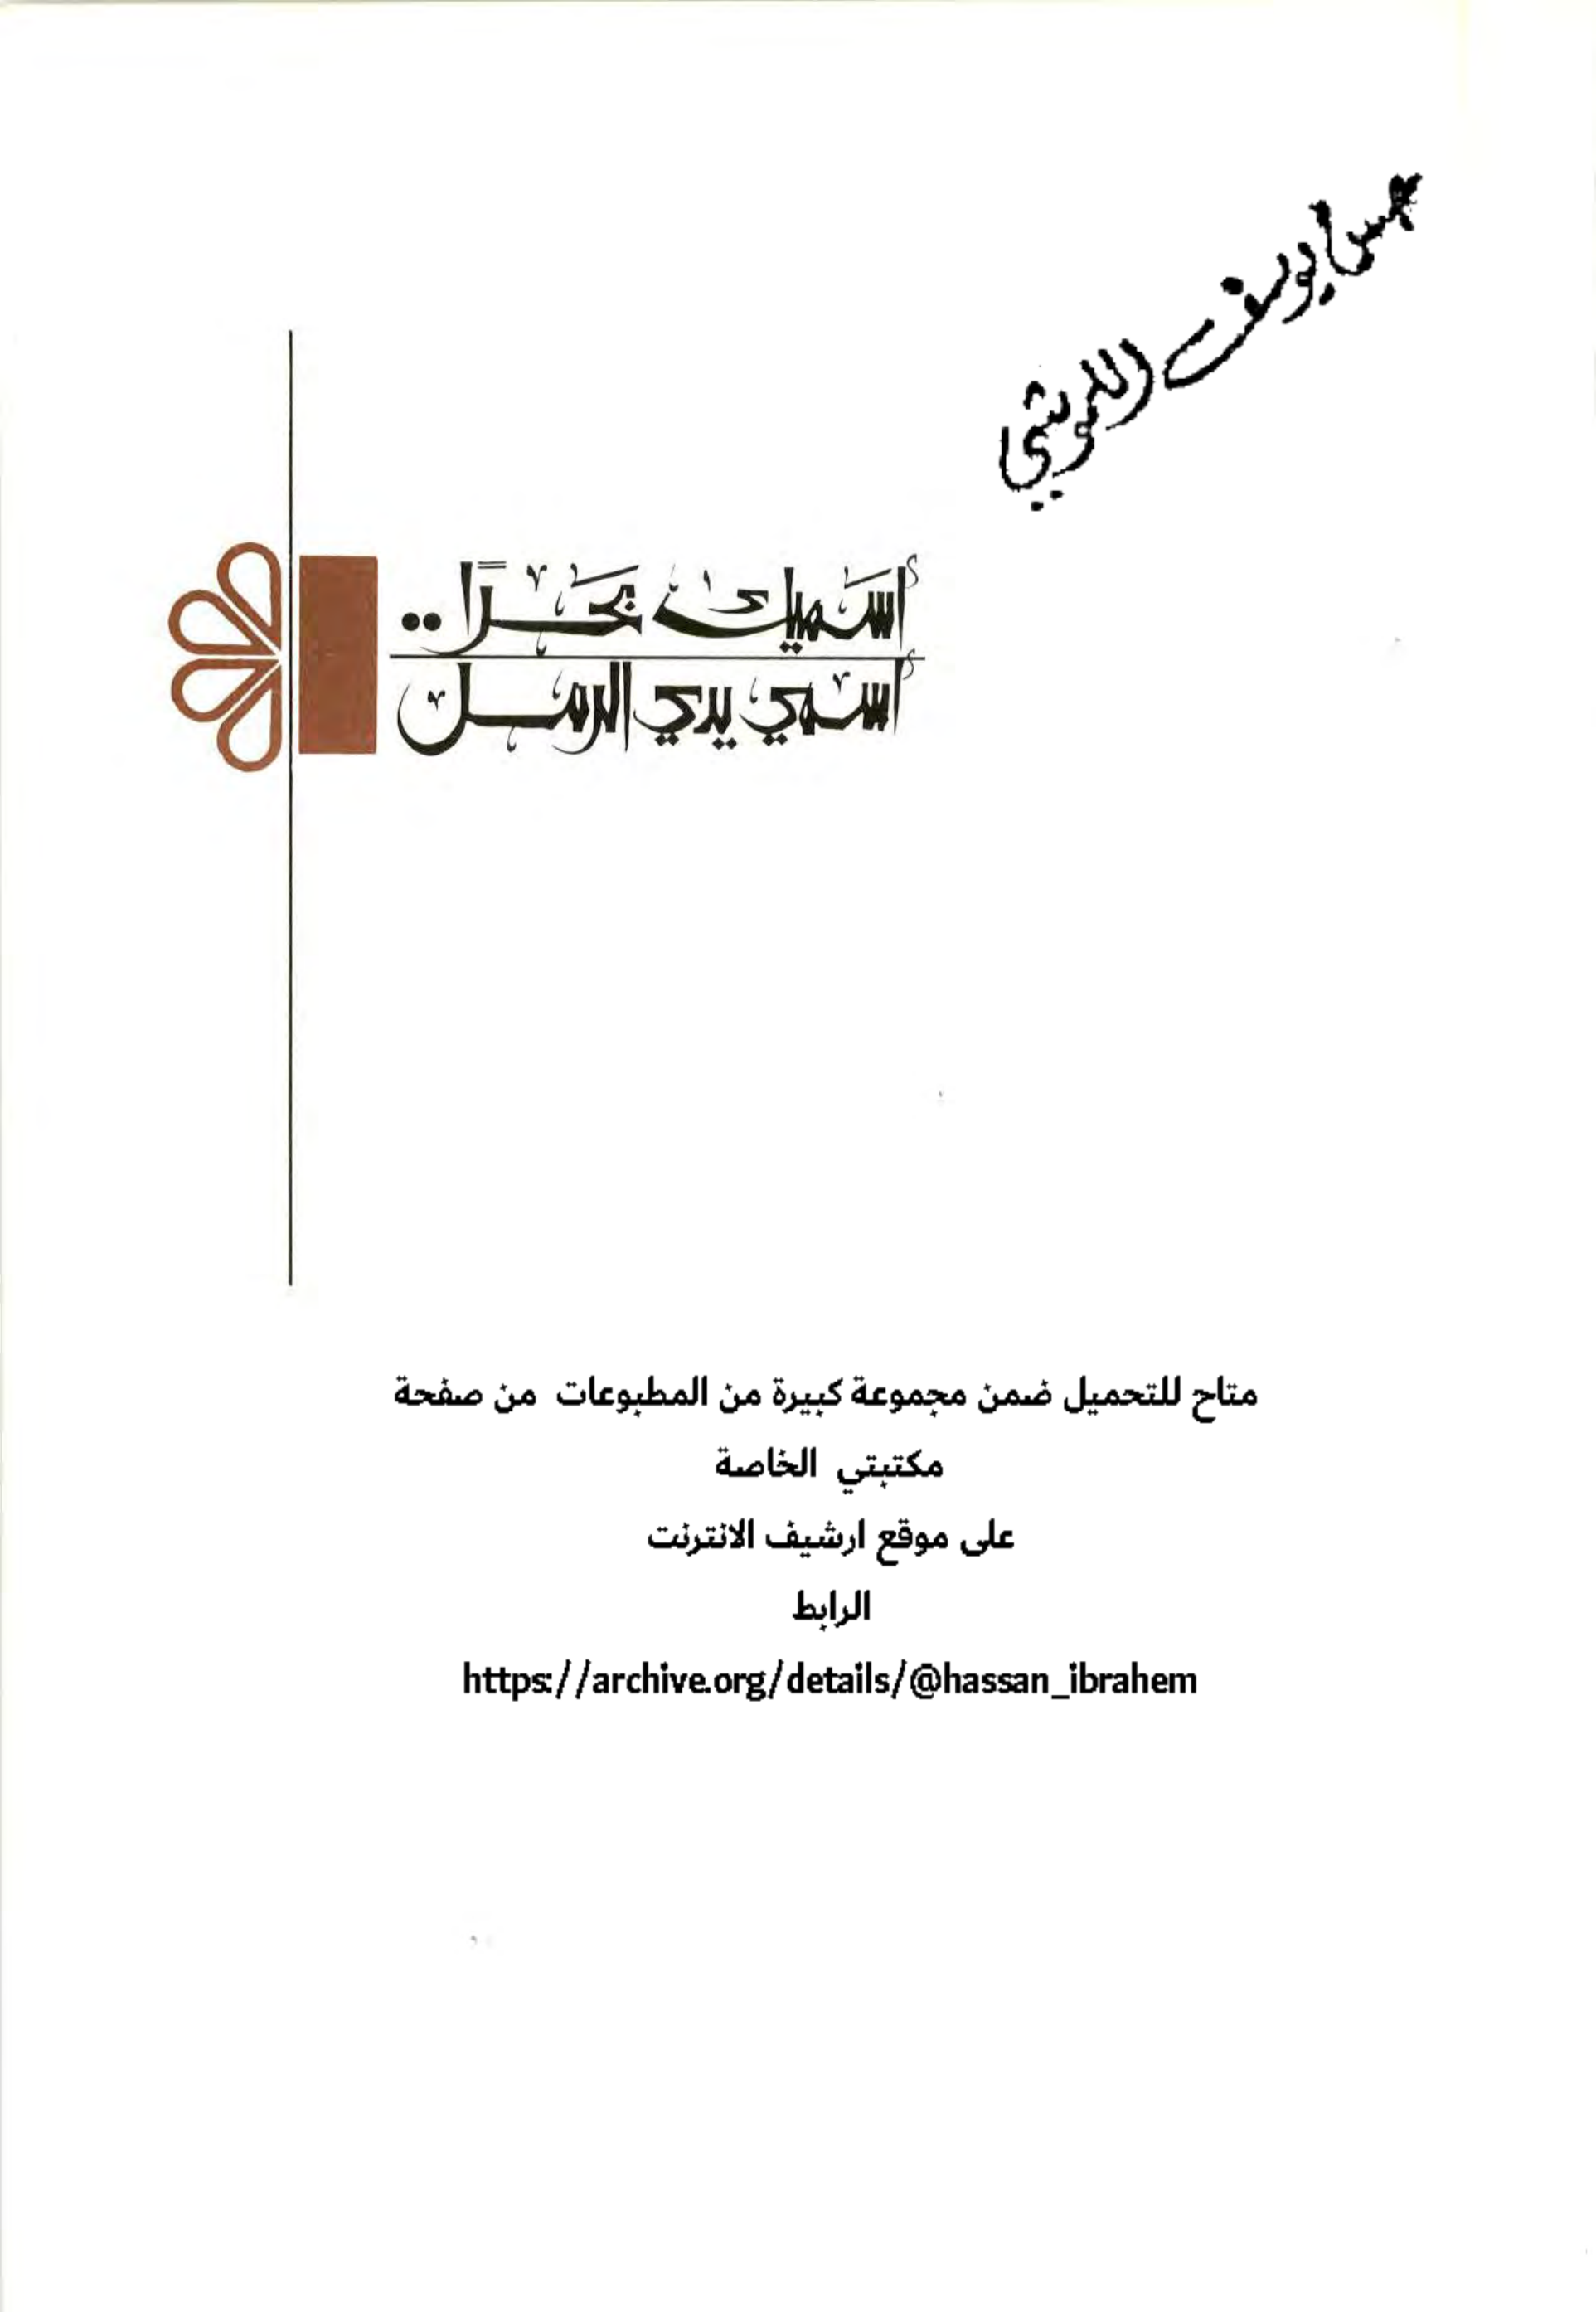 أسَميك بحَرًا..
أسمي يدي الرمل
متاح للتحميل ضمن مجموعة كبيرة من المطبوعات من صفحة
مكتبتي الخاصة
على موقع ارشيف الانترنت
الرابط
https://archive.org/details/@hassan_ibrahem